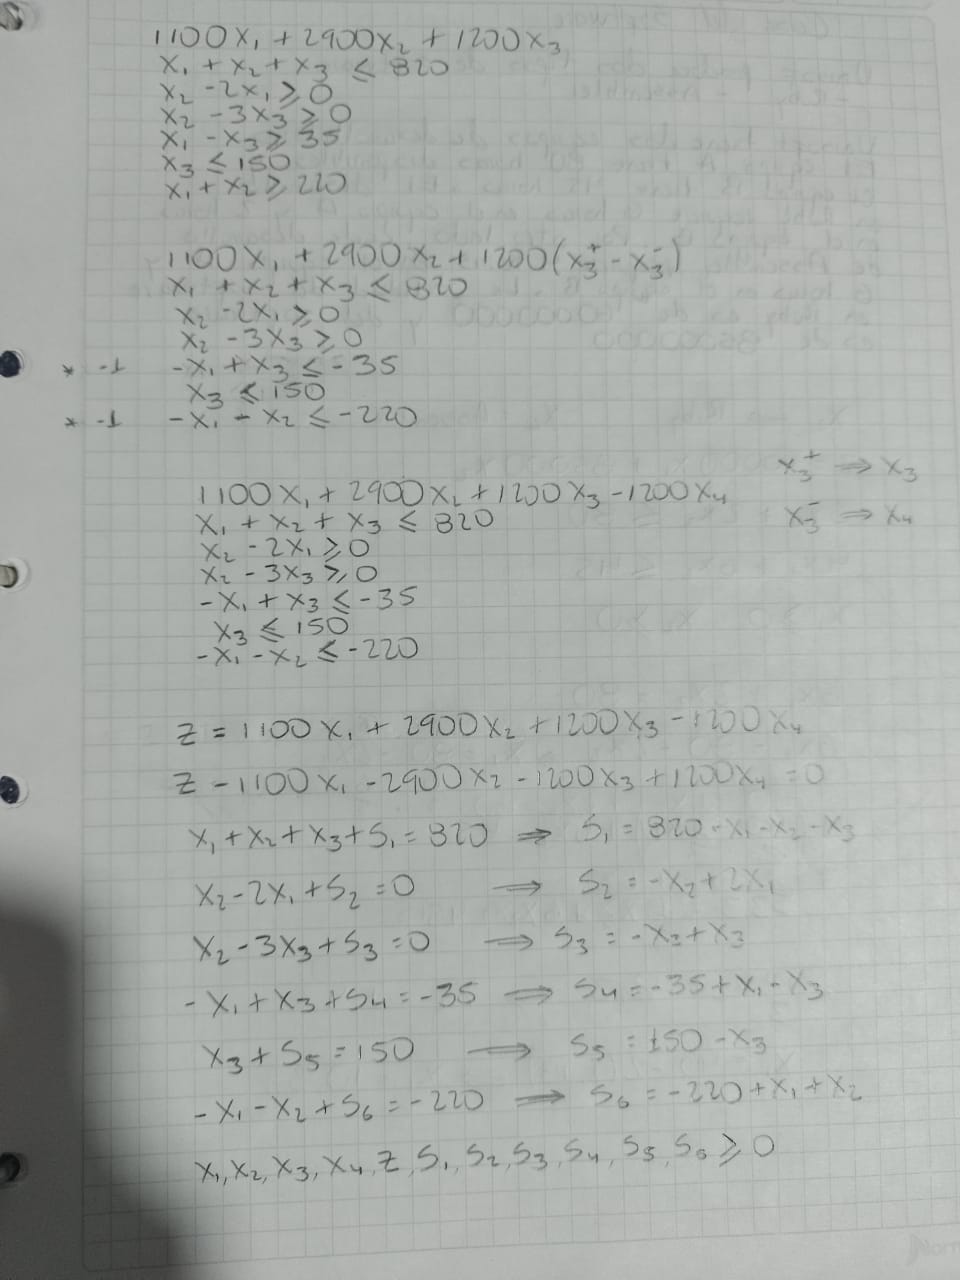 1100X₁ + 2900X₂ + 1200X₃
X₁ + X₂ + X₃ ≤ 820
X₂ - 2X₁ ≥ 0
X₂ - 3X₃ ≥ 0
X₁ - X₃ ≥ 35
X₃ ≤ 150
X₁ + X₂ ≥ 220
1100X₁ + 2900X₂ + 1200(X₃⁺ - X₃⁻)
X₁ + X₂ + X₃ ≤ 820
X₂ - 2X₁ ≥ 0
X₂ - 3X₃ ≥ 0
* -1 -X₁ + X₃ ≤ -35
X₃ ≤ 150
* -1 -X₁ - X₂ ≤ -220
X₃⁺ ⇒ X₃
1100X₁ + 2900X₂ + 1200X₃ - 1200X₄
X₃⁻ ⇒ X₄
X₁ + X₂ + X₃ ≤ 820
X₂ - 2X₁ ≥ 0
X₂ - 3X₃ ≥ 0
-X₁ + X₃ ≤ -35
X₃ ≤ 150
-X₁ - X₂ ≤ -220
Z = 1100X₁ + 2900X₂ + 1200X₃ - 1200X₄
Z - 1100X₁ - 2900X₂ - 1200X₃ + 1200X₄ = 0
X₁ + X₂ + X₃ + S₁ = 820 ⇒ S₁ = 820 - X₁ - X₂ - X₃
X₂ - 2X₁ + S₂ = 0 ⇒ S₂ = -X₂ + 2X₁
X₂ - 3X₃ + S₃ = 0 ⇒ S₃ = -X₂ + X₃
-X₁ + X₃ + S₄ = -35 ⇒ S₄ = -35 + X₁ - X₃
X₃ + S₅ = 150 ⇒ S₅ = 150 - X₃
-X₁ - X₂ + S₆ = -220 ⇒ S₆ = -220 + X₁ + X₂
X₁, X₂, X₃, X₄, Z, S₁, S₂, S₃, S₄, S₅, S₆ ≥ 0